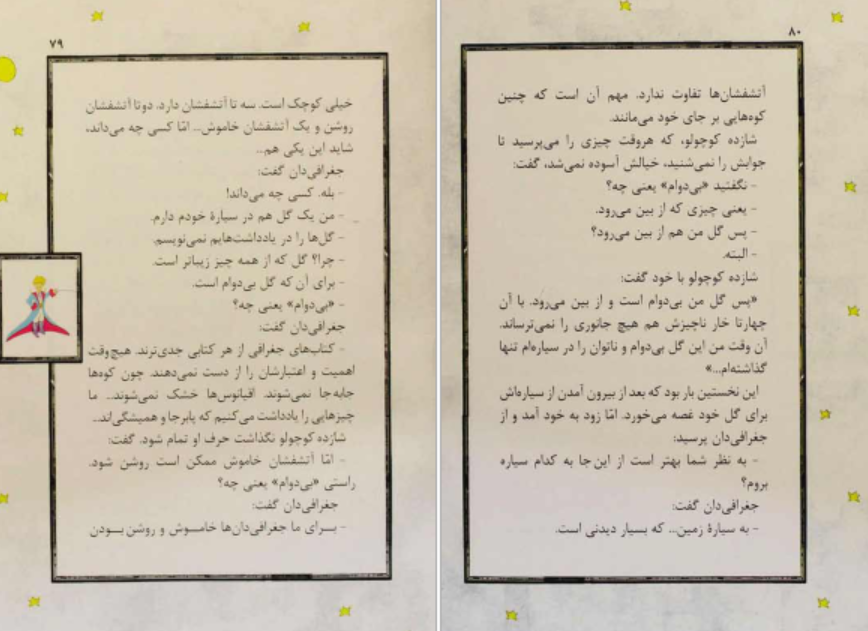 ۷۹
خیلی کوچک است. سه تا آتشفشان دارد. دوتا آتشفشان
روشن و یک آتشفشان خاموش... امّا کسی چه می‌داند،
شاید این یکی هم...
جغرافی‌دان گفت:
- بله. کسی چه می‌داند!
- من یک گل هم در سیارهٔ خودم دارم.
- گل‌ها را در یادداشت‌هایم نمی‌نویسم.
- چرا؟ گل که از همه چیز زیباتر است.
- برای آن که گل بی‌دوام است.
- «بی‌دوام» یعنی چه؟
جغرافی‌دان گفت:
- کتاب‌های جغرافی از هر کتابی جدی‌ترند. هیچ‌وقت
اهمیت و اعتبارشان را از دست نمی‌دهند. چون کوه‌ها
جابه‌جا نمی‌شوند. اقیانوس‌ها خشک نمی‌شوند... ما
چیزهایی را یادداشت می‌کنیم که پابرجا و همیشگی‌اند...
شازده کوچولو نگذاشت حرف او تمام شود. گفت:
- امّا آتشفشان خاموش ممکن است روشن شود.
راستی «بی‌دوام» یعنی چه؟
جغرافی‌دان گفت:
- برای ما جغرافی‌دان‌ها خاموش و روشن بودن
۸۰
آتشفشان‌ها تفاوت ندارد. مهم آن است که چنین
کوه‌هایی بر جای خود می‌مانند.
شازده کوچولو، که هروقت چیزی را می‌پرسید تا
جوابش را نمی‌شنید، خیالش آسوده نمی‌شد، گفت:
- نگفتید «بی‌دوام» یعنی چه؟
- یعنی چیزی که از بین می‌رود.
- پس گل من هم از بین می‌رود؟
- البته.
شازده کوچولو با خود گفت:
«پس گل من بی‌دوام است و از بین می‌رود. با آن
چهارتا خار ناچیزش هم هیچ جانوری را نمی‌ترساند.
آن وقت من این گل بی‌دوام و ناتوان را در سیاره‌ام تنها
گذاشته‌ام...»
این نخستین بار بود که بعد از بیرون آمدن از سیاره‌اش
برای گل خود غصه می‌خورد. امّا زود به خود آمد و از
جغرافی‌دان پرسید:
- به نظر شما بهتر است از این‌جا به کدام سیاره
بروم؟
جغرافی‌دان گفت:
- به سیارهٔ زمین... که بسیار دیدنی است.